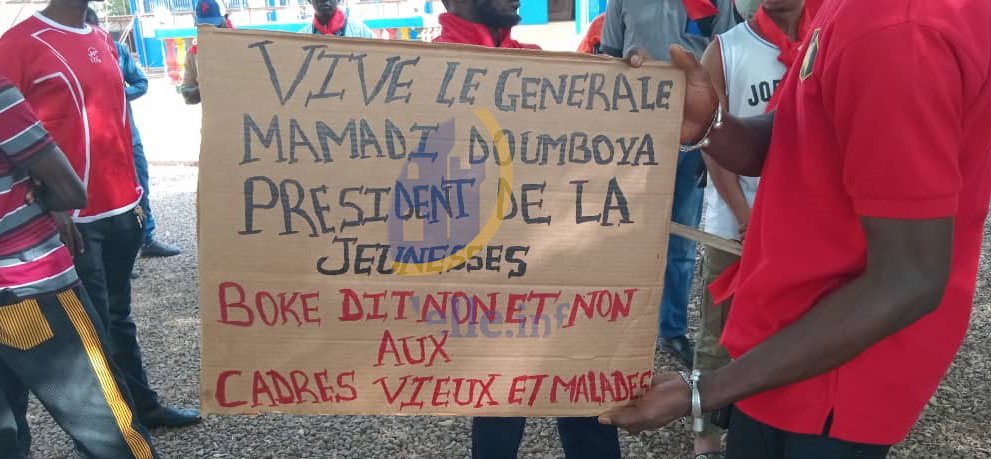 VIVE LE GENERALE
MAMADI DOUMBOYA
PRESIDENT DE LA
JEUNESSES
BOKE DIT NON ET NON
AUX
CADRES VIEUX ET MALADES
JOR